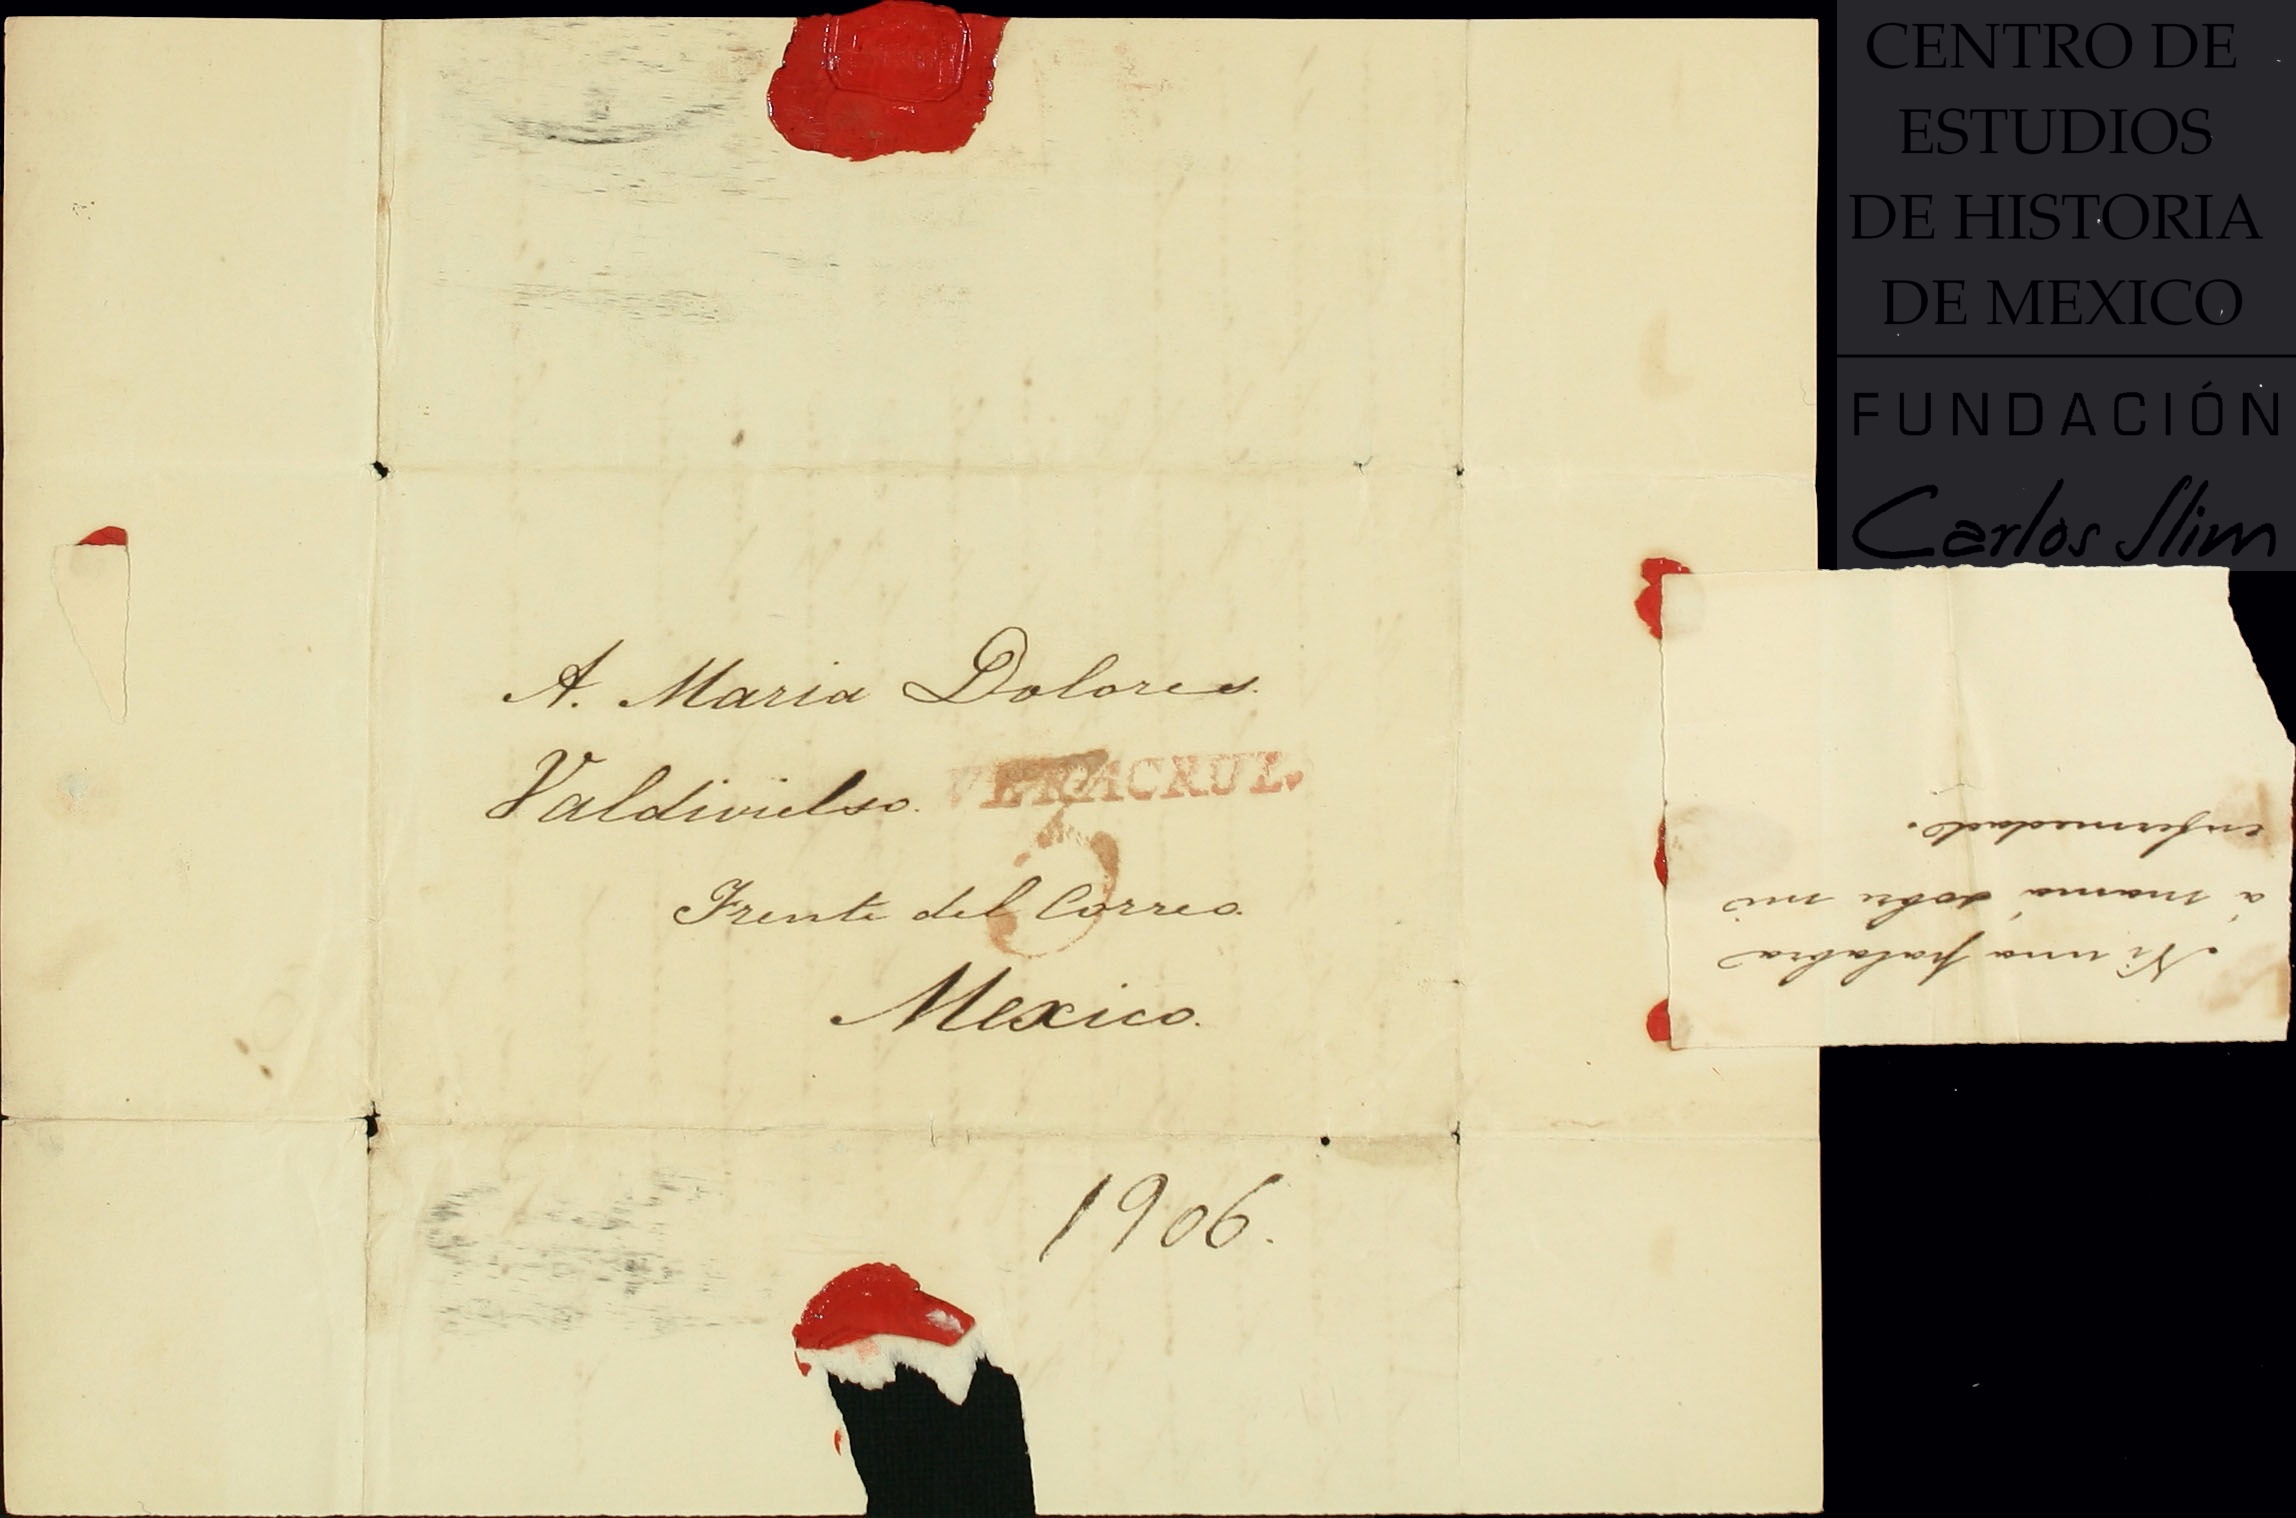 CENTRO DE
ESTUDIOS
DE HISTORIA
DE MEXICO
FUNDACIÓN
Carlos Slim
A. Maria Dolores.
Valdivielso.
VERACRUZ.
Frente del Correo.
Mexico.
1906.
Ni una palabra
á mamá sobre mi
enfermedad.